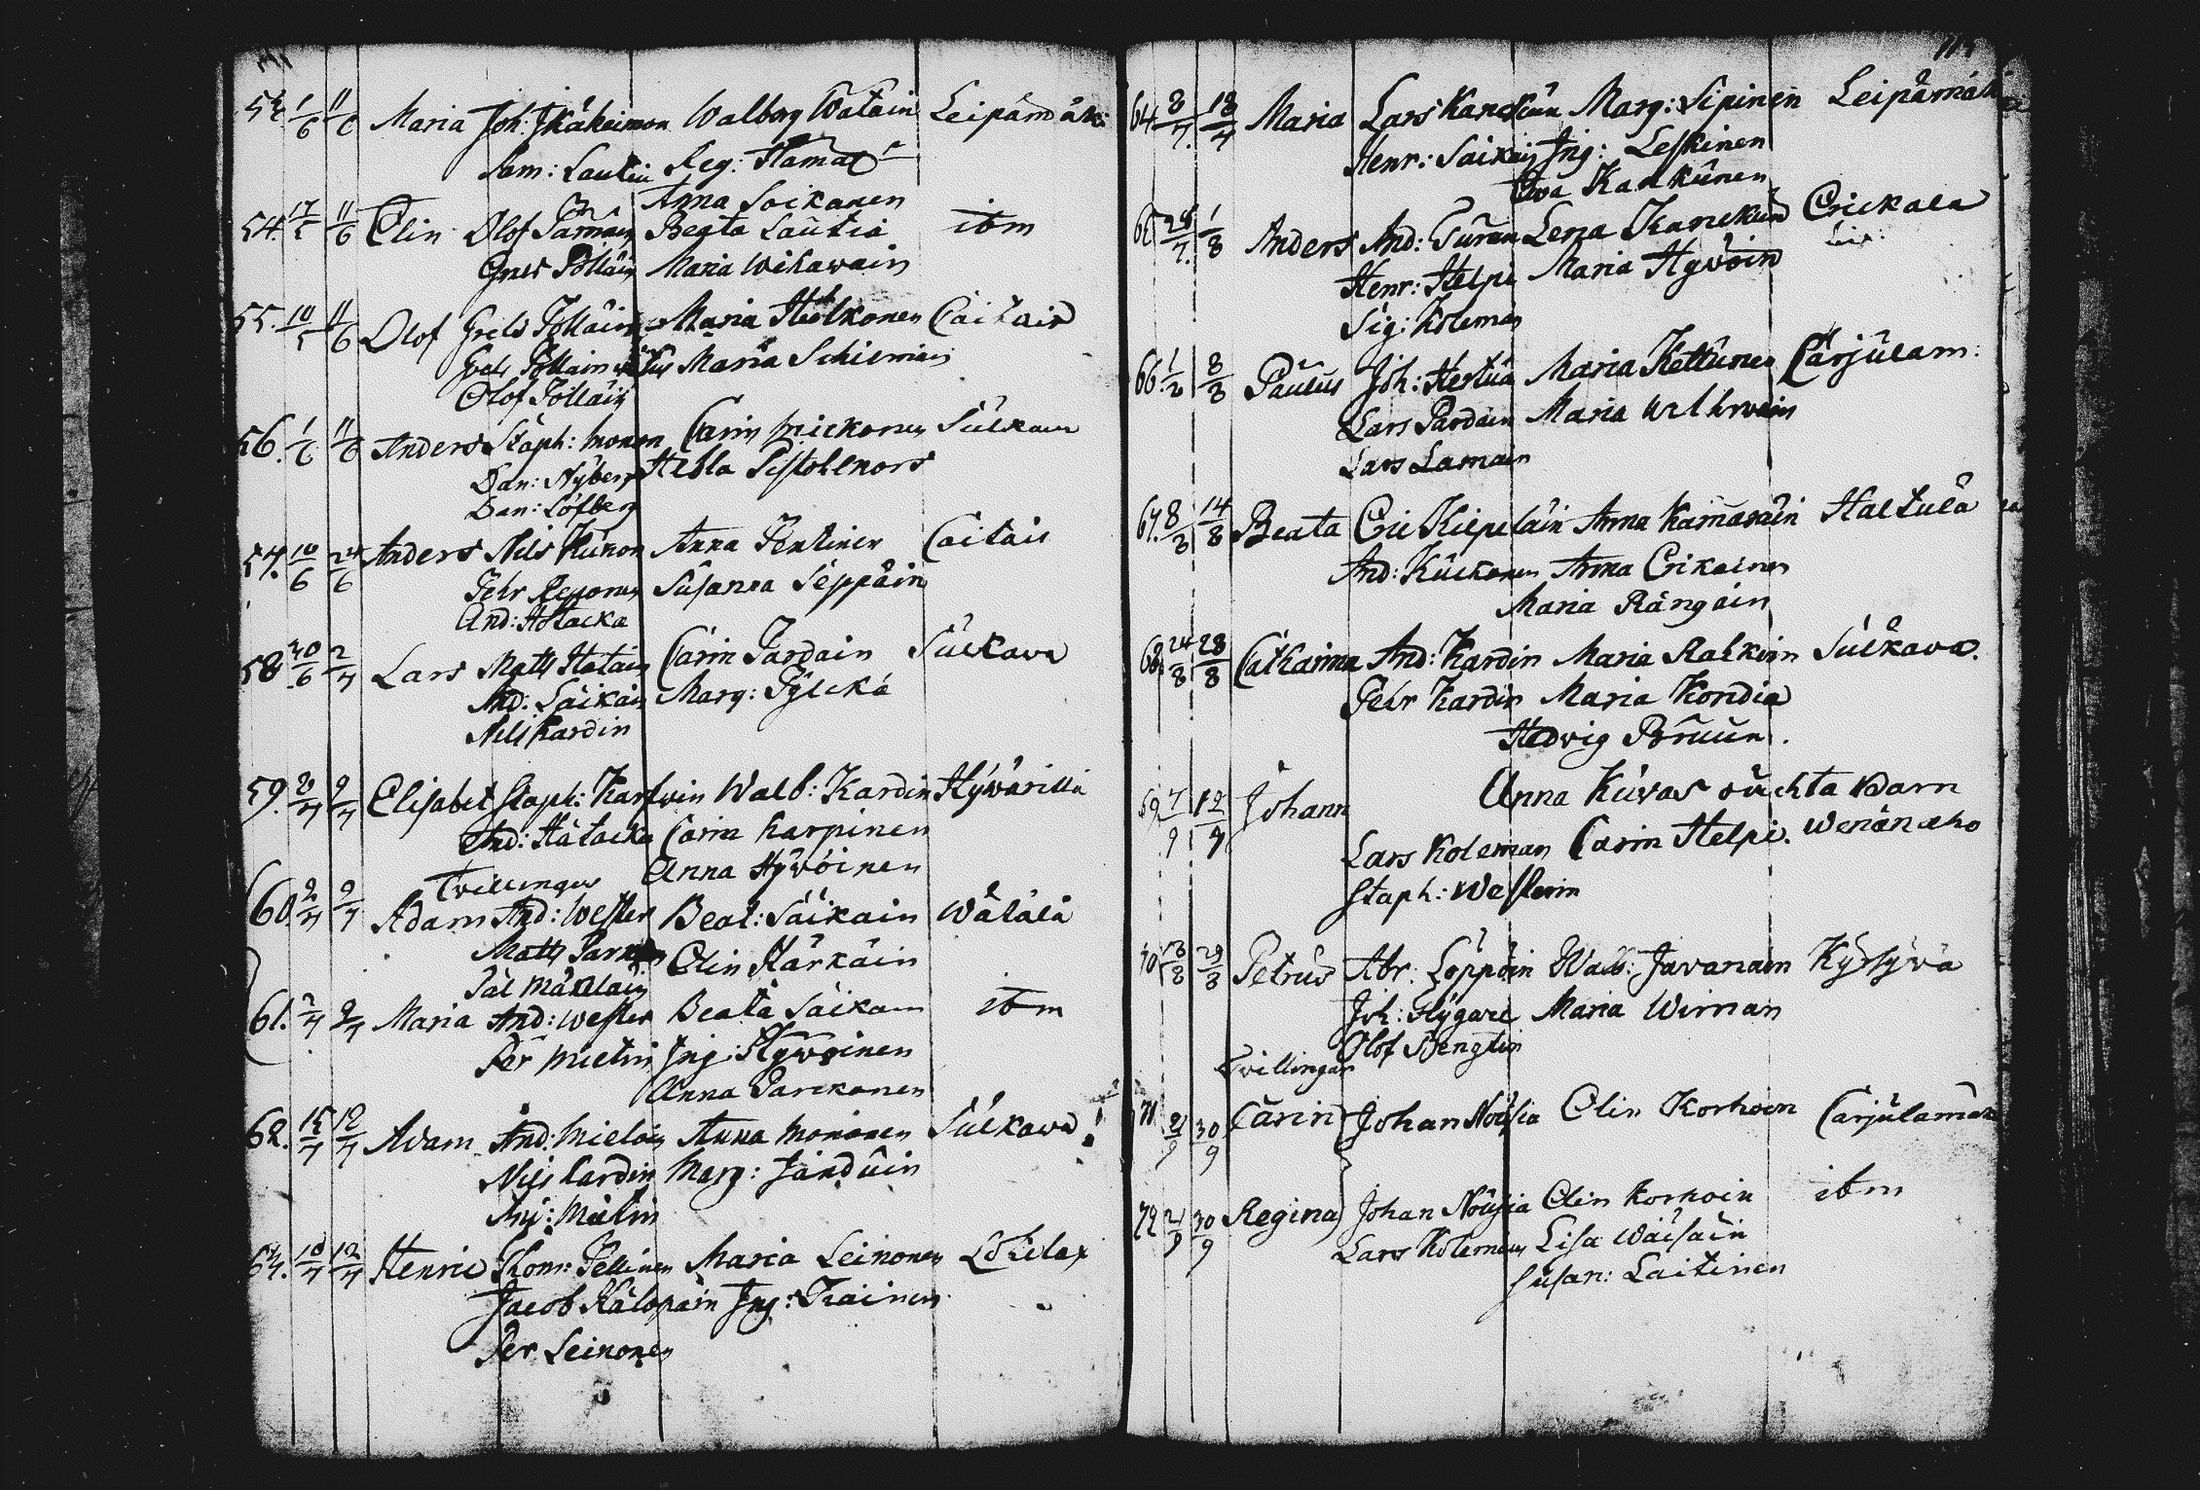 Maria Joh: Ikäheimon Walborg Watain Leipämäki
Sam: Lautia Reg: Hämäl:n
Anna Soikanen
54. 17/5 11/6 Elin Olof Beata Lautia ibm
Grels Pöllöin Maria Wihawain
55. 10/5 11/6 Olof Grels Pöllöin Maria Heilkonen Caitais
Grels Pöllöin Maria Schieman
Olof Pöllöin
56. 1/6 11/6 Anders Staph: Monon Carin Mickonen Sulkawa
Dan: Nyberg Hebla Pistolenors
Dan: Löfberg
57. 10/6 24/6 Anders Nils Kunon Anna Pentinen Caitais
Pehr Repponen Susanna Seppäin
And: Hätäcka
58 30/6 2/7 Lars Matts Carin Pardain Sulkawa
And: Saikain Marg: Pylckä
Nils Kardin
59. 2/7 9/7 Elisabet Staph: Karfwin Walb: Kardin Hywärillä
And: Hätäcka Carin Karpinen
Twillingar Anna Hywöinen
60. 2/7 9/7 Adam And: Wester Beat: Säikain Wätälä
Matts Elin Kärkäin
Pål Määtäin
61. 2/7 9/7 Maria And: Wester Beata Säikain ibm
Per Mietin Ing: Hywöinen
Anna Parckonen
62. 12/7 Adam And: Mieloin Anna Monnonen Sulkawa
Nils Cardin Marg: Janduin
And: Malin
10/7 12/7 Henric Thom: Pellinen Maria Leinonen Lohilax
Jacob Kälopain Ing: Kainen
Per Leinonen
64. 8/7 18/7 Maria Lars Kanckun Marg: Sipinen Leipämäki
Henr: Saikain Ing: Leskinen
Ewa Kanckunen
28/7 1/8 Anders And: Turan Lena Kanckun Erickala
Henr: Helpi Maria Hywöin
Sig: Koleman
66. 8/8 Paulus Joh: Hertua Maria Kettunen Carjulam:
Lars Pardain Maria
Lars Lamain
67. 8/8 14/8 Beata Eric Kiepeläin Anna Kamäräin Haltula
And: Kuckonen Anna Erikainen
Maria Rängäin
68. 24/8 28/8 Catharina And: Kardin Maria Ralkinn Sulkawa.
Pehr Kardin Maria Kondia
Hedwig Bruun.
69 7/9 Johann Anna Kuwas oächta barn
Lars Koleman Carin Helpi. Wenänaho
Staph: Westerin
70 29/8 Petrus Abr: Loppoin Walb: Javanain Kyrsyvä
Joh: Flygare Maria Wirman
Olof Bengtin
Twillingar
71 21/9 30/9 Carin Johan Nousia Elin Korhoin Carjulamäki
72 21/9 30/9 Regina Johan Nousia Elin Korhoin ibm
Lars Kolemain Lisa Wäisäin
Susan: Laitinen